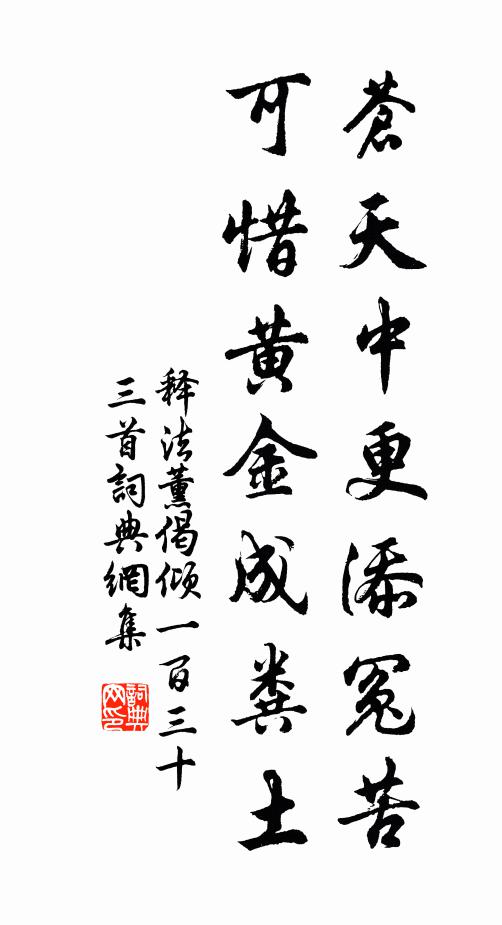 蒼天中更添冤苦
可惜黄金成糞土
释法薰偈倾一百三十
三首詞典網集
詞典
网印